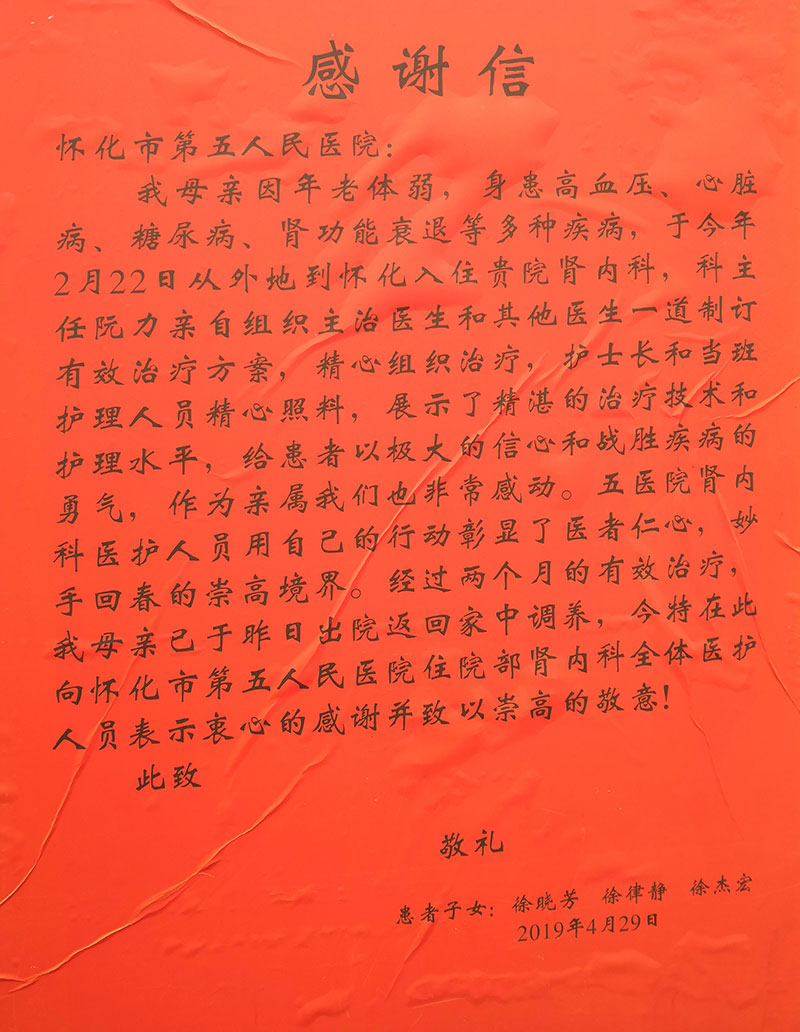 感谢信
怀化市第五人民医院：
我母亲因年老体弱，身患高血压、心脏
病、糖尿病、肾功能衰退等多种疾病，于今年
2月22日从外地到怀化入住贵院肾内科，科主
任阮力亲自组织主治医生和其他医生一道制订
有效治疗方案，精心组织治疗，护士长和当班
护理人员精心照料，展示了精湛的治疗技术和
护理水平，给患者以极大的信心和战胜疾病的
勇气，作为亲属我们也非常感动。五医院肾内
科医护人员用自己的行动彰显了医者仁心，妙
手回春的崇高境界。经过两个月的有效治疗，
我母亲已于昨日出院返回家中调养，今特在此
向怀化市第五人民医院住院部肾内科全体医护
人员表示衷心的感谢并致以崇高的敬意！
此致
敬礼
患者子女：徐晓芳 徐律静 徐杰宏
2019年4月29日